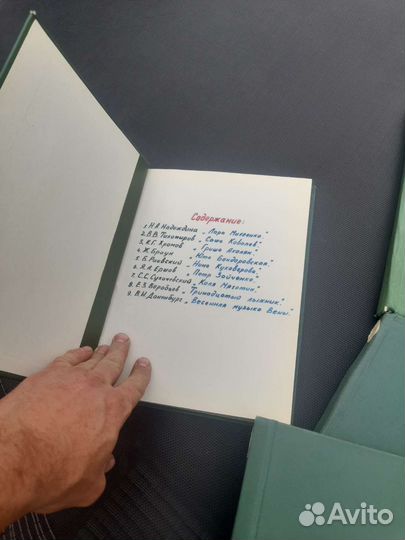 Содержание:
1. Н.А. Надеждина „Лара Михеенко"
2. В.В. Тихомиров „Саша Ковалёв"
3. К.Г. „Гриша Акопян"
4. Ж. Браун „Юта Бондаровская"
5. Б. Раевский „Нина Куковерова"
6. Я.А. Ершов „Петр Зайченко"
7. С.С. „Коля Мяготин"
8. Е.З. Воробьёв „Тринадцатый лыжник"
9. В.И. Даненбург „Весенняя музыка Вены."
Avito